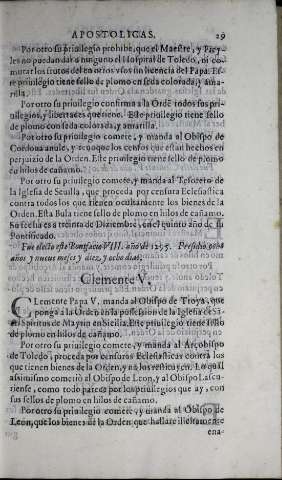 APOSTOLICAS. 29
Por otro su priuilegio prohibe, que el Maestre, y Frey-
les no puedan dar a ninguno el Hospital de Toledo, ni co-
mutar los frutos del en otros vsos sin licencia del Papa. Es-
te priuilegio tiene sello de plomo en seda colorada, y ama-
rilla.
Por otro su priuilegio confirma a la Ordē todos sus pri-
uilegios, y libertades que tiene. Este priuilegio tiene sello
de plomo en seda colorada, y amarilla.
Por otro su priuilegio comete, y manda al Obispo de
Cordoua anule, y reuoque los censos que estan hechos en
perjuizio de la Orden. Este priuilegio tiene sello de plomo
en hilos de cañamo.
Por otro su priuilegio comete, y manda al Tesorero de
la Iglesia de Seuilla, que proceda por censura Eclesiastica
contra todos los que tienen ocultamente los bienes de la
Orden. Esta Bula tiene sello de plomo en hilos de cañamo.
Su fecha es a treinta de Diziembre, en el quinto año de su
Pontificado.
Fue electo este Bonifacio VIII. año de 1295. Presidio ocho
años y nueue meses y diez y ocho dias.
Clemente V.
CLemente Papa V. manda al Obispo de Troya, que
ponga a la Orden en la possession de la Iglesia de Sā-
ti Spiritus de Mayrin en Sicilia. Este priuilegio tiene sello
de plomo en hilos de cañamo.
Por otro su priuilegio comete, y manda al Arçobispo
de Toledo, proceda por censuras Eclesiasticas contra los
que tienen bienes de la Orden, y no los restituyen. Lo qual
assimismo cometio al Obispo de Leon, y al Obispo Lascu-
riense, como todo parece por los priuilegios que ay, con
sus sellos de plomo en hilos de cañamo.
Por otro su priuilegio comete, y manda al Obispo de
Leon, que los bienes de la Orden, que hallare ilicitamente
ena-